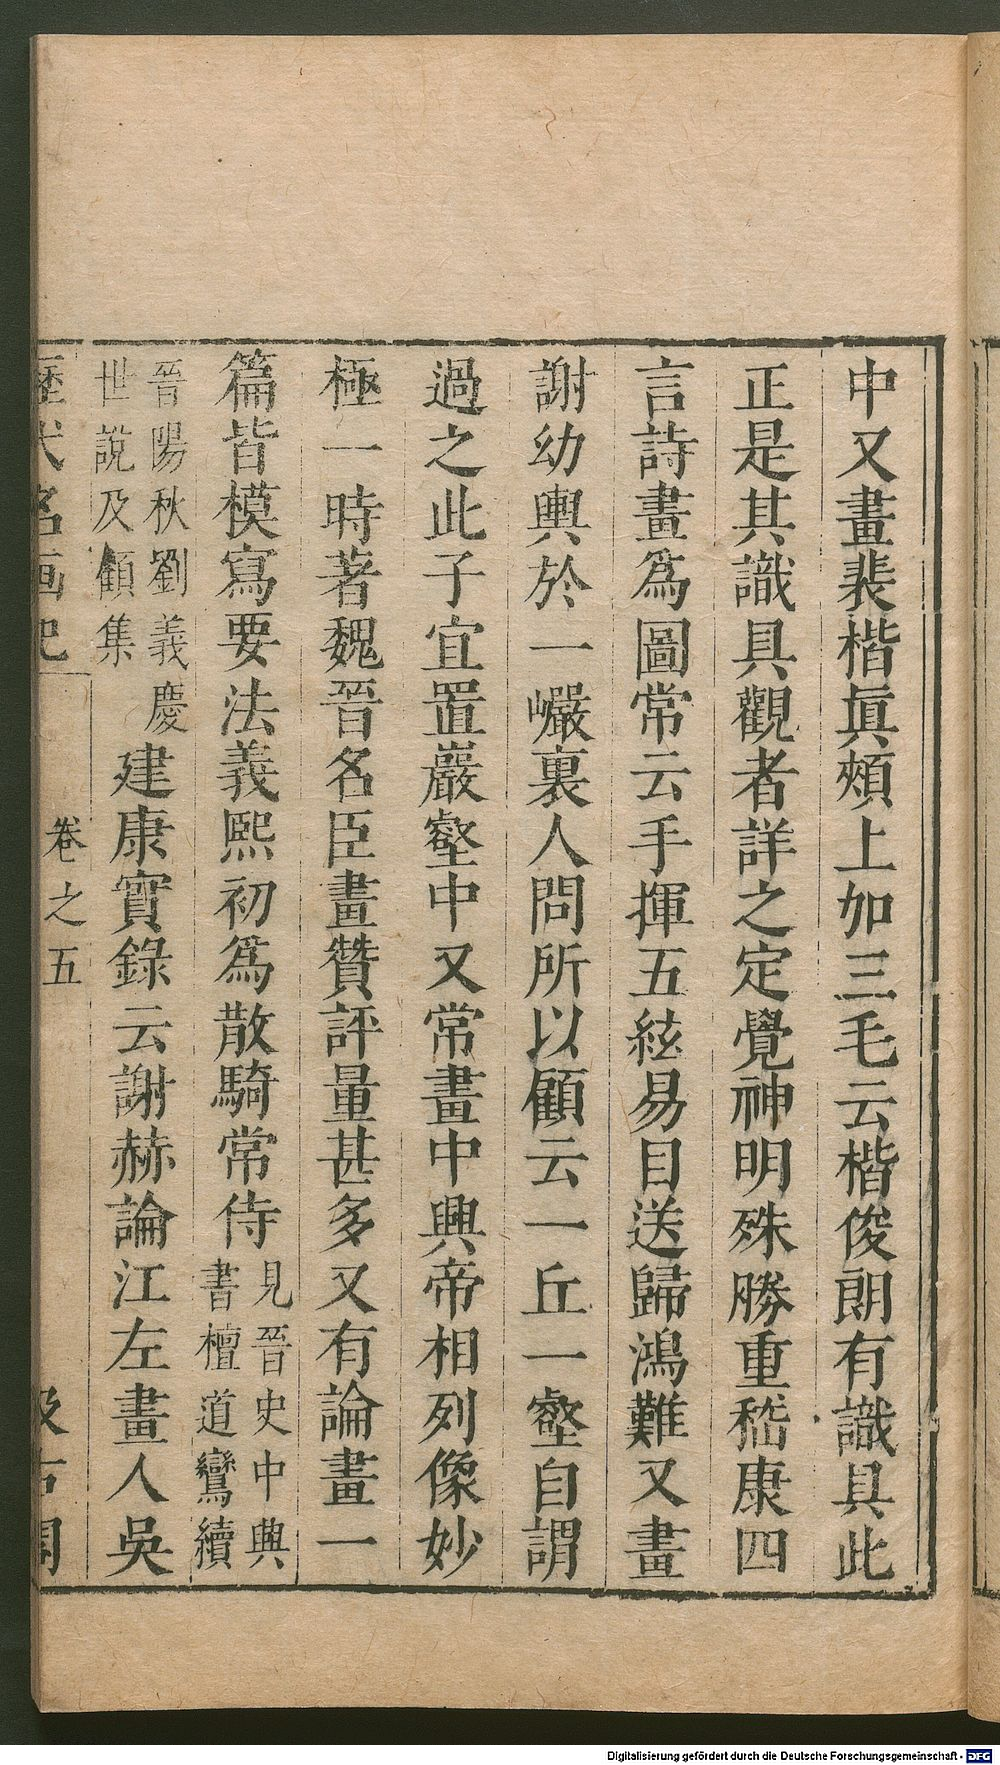 中又畫裴楷真頰上加三毛云楷俊朗有識具此
正是其識具觀者詳之定覺神明殊勝重嵇康四
言詩畫為圖常云手揮五絃易目送歸鴻難又畫
謝幼輿於一巗裏人問所以顧云一丘一壑自謂
過之此子宜置巖壑中又常畫中興帝相列像妙
極一時著魏晉名臣畫贊評量甚多又有論畫一
篇皆模寫要法義熙初為散騎常侍見晉史中興
書檀道鸞續
晉陽秋劉義慶
世說及顧集建康實錄云謝赫論江左畫人吳
歷代名画史
卷之五
汲古閣
Digitalisierung gefördert durch die Deutsche Forschungsgemeinschaft - DFG